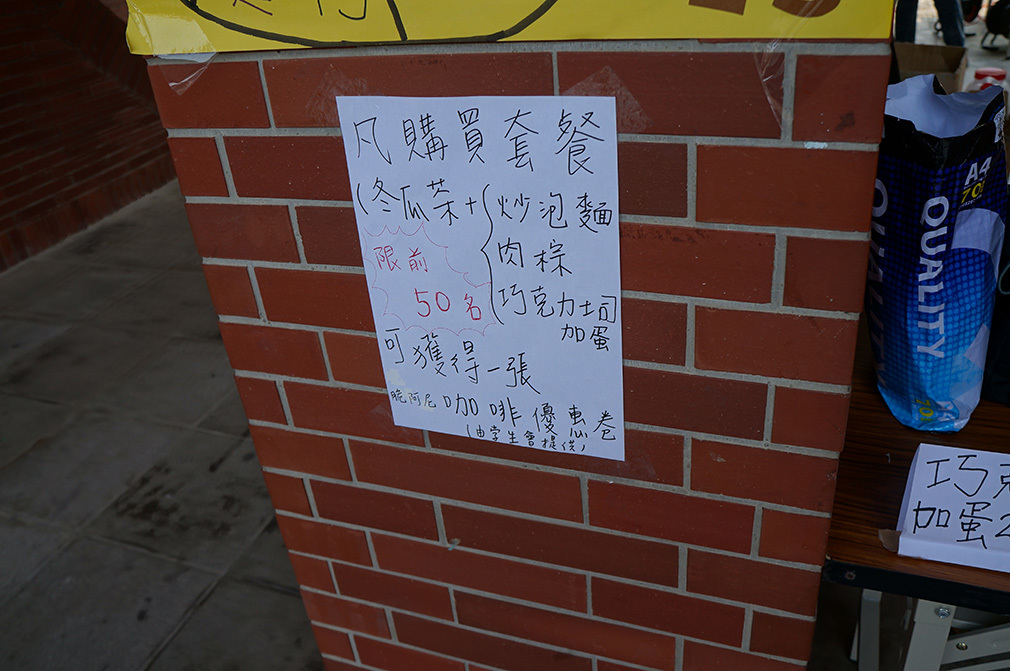 凡購買套餐
(冬瓜茶+{炒泡麵
肉粽
巧克力土司
加蛋
限前
50名
可獲得一張
脆阿尼咖啡優惠卷
(由学生會提供)
A4
70
QUALITY
巧克
加蛋2